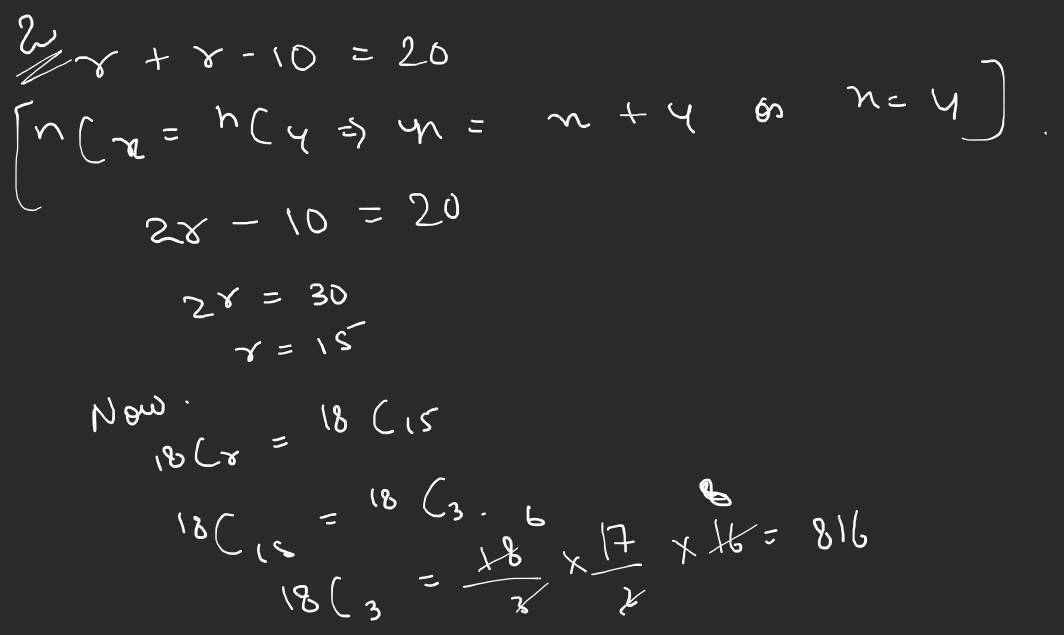 2 r + r - 10 = 20
[ nCx = nCy ⇒ n = x + y or x = y ] .
2r - 10 = 20
2r = 30
r = 15
Now.
18Cr = 18C15
18C15 = 18C3.
18C3 = 18/3 6 × 17/2 × 16 8 = 816